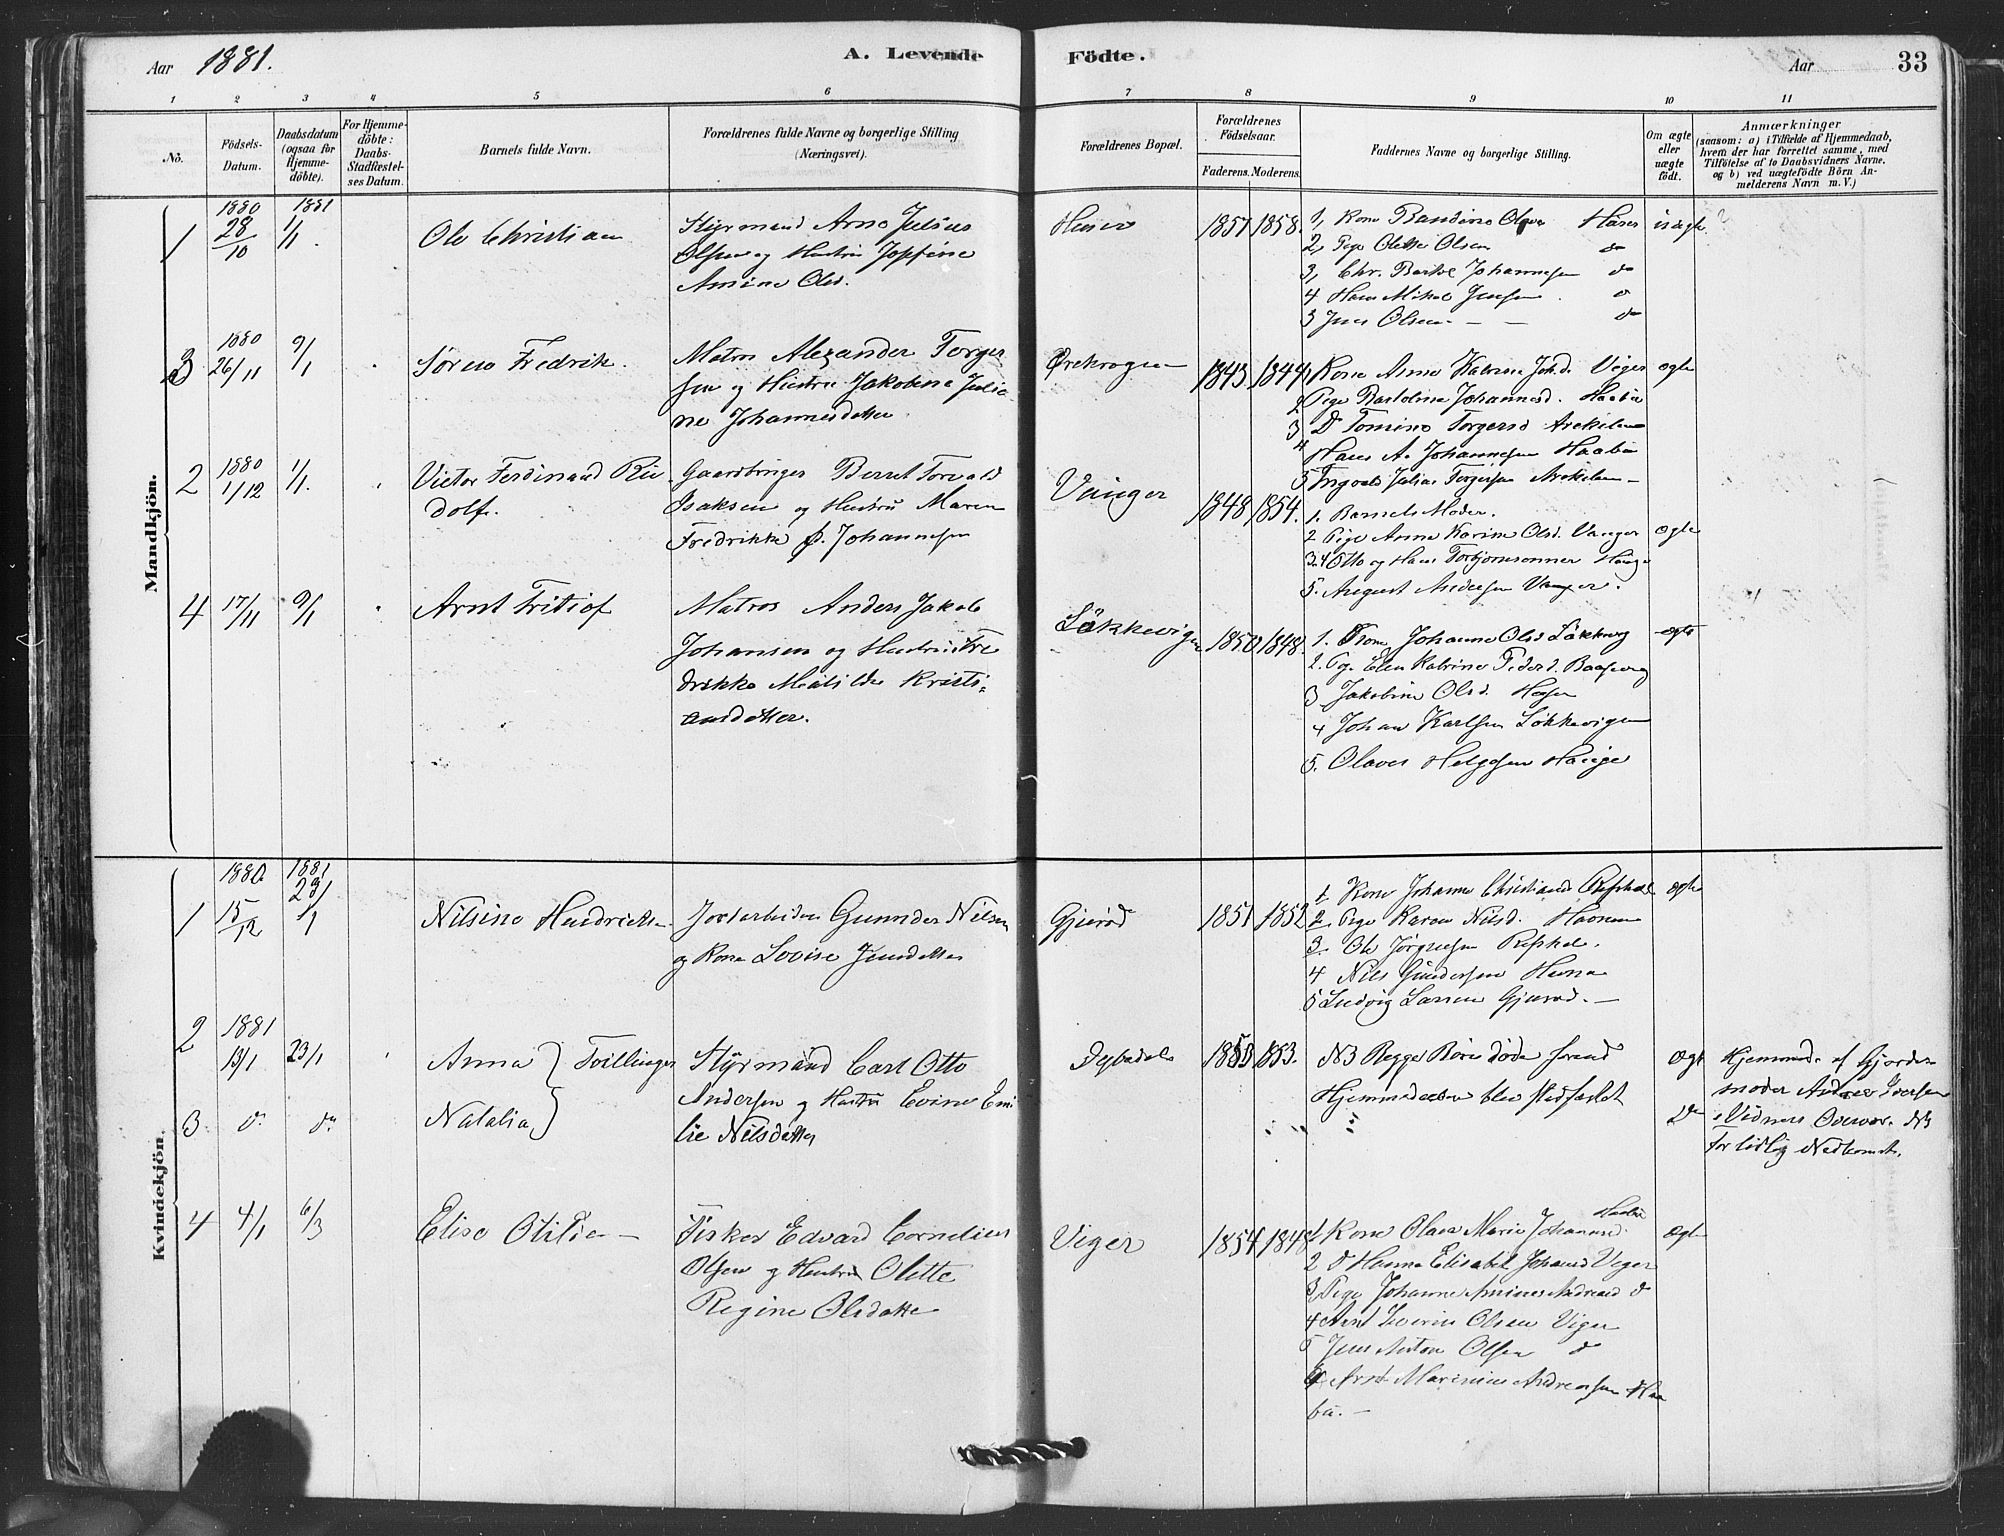 Aar 1881.
A. Levende Födte.
Aar 33
1 2 3 4 5 6 7 8 9 10 11
No.
Födsels-Datum.
Daabsdatum (ogsaa för Hjemme-döbte).
For Hjemme-döbte: Daabs-Stadfæstel-ses Datum.
Barnets fulde Navn.
Forældrenes fulde Navne og borgerlige Stilling (Næringsvei).
Forældrenes Bopæl.
Forældrenes Födselsaar.
Faderens. Moderens.
Faddernes Navne og borgerlige Stilling.
Om ægte eller uægte födt.
Anmærkninger
(saasom: a) i Tilfælde af Hjemmedaab,
hvem der har forrettet samme, med
Tilföielse af to Daabsvidners Navne,
og b) ved uægtefödte Börn An-
melderens Navn m. V.)
Mandkjön.
1
1880 28/10
1881 1/1.
Ole Christian
Styrmand Arne Julius
Olsen og Hustru
Amine Olsd.
1857 1858.
1, Kone Olsen
2, Pige Olette Olsen do
3, Chr. Johannesen do
4 Hans Mikal Jensen. do
Jens Olsen - - do
3
1880 26/11
9/1
Sören Fredrik.
Matros Alexander Torger
sen og Hustru Jakobine Julia
ne Johannesdatter.
1843 1844
1 Kone Anne Katrine Joh.d. Viger
ægte
2 Pige Bartoline Johannesd. Haabu
3 D Tomine Torgersd
4 Hans A. Johannesen Haabu
5 Ingvald Julius Torgersen
2
1880 1/12
1/1.
Victor Ferdinand Ru
dolf.
Gaardbruger Berret Torvald
Isaksen og Hustru Maren
Fredrikke f. Johannesen
1848 1854.
1. Barnets Moder.
2 Pige Anne Karine Olsd. Vanger
ægte
3.4 Otto og Hans Torbjörnsönner Hauge
5. August Andersen Vanger.
4
17/11
9/1
Arnt Fritiof
Matros Anders Jakob
Johansen og Hustru Fre
drikke Matilde Kristi-
ansdatter.
Lökkevigen
1850 1848.
1. Kone Johanne Olsd Lökkevig
ægte
2. Pige Elen Katrine Peders d.
3 Jakobine Olsd.
4 Johan Karlsen Lökkevigen
5. Olaves Helgesen Hauge
Kvindekjön.
1
1880. 15/12
1881 23/1
Nilsine Hendrikke
Jordarbeider Gunnder Nilsen
og Kone Lovise Jensdatter
Gjeröd
1851 1852
1 Kone Johanne Christiansd
ægte
2. Pige Karen Nilsd.
3. Ole Jörgensen
4 Nils Gundersen
5 Ludvig Larsen Gjeröd. -
2
1881 13/1
23/1
Anna } Tvillinger
Styrmand Carl Otto
Andersen og Hustru Evine Emi
lie Nilsdatter
Dybedal
1853.
NB Begge Börn döde forend
Hjemmedaaben blev stadfæstet
Ægte
Hjemmed. af Gjorde-
moder Andrea Iversen
i Vidners Overvær. NB
for tidlig Nedkomst.
3.
do
do
Natalia }
Do
4
4/1
6/3
Elise Otilie -
Fisker Edvard Cornelius
Olsen og Hustru Olette
Regine Olsdatter
Viger
1854 1848
1 Kone Olava Marie Johannesd. Haabu
Ægte
2 D Hanna Elisabet Johansd Viger
3 Pige Johanne Amine Andreasd do
4 Arnt Severin Olsen Viger
5 Jens Anton Olsen do
Marinius Andreassen Haa
bu. -